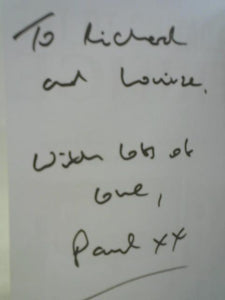 To Richard
and Louise.
With lots of
love,
Paul xx